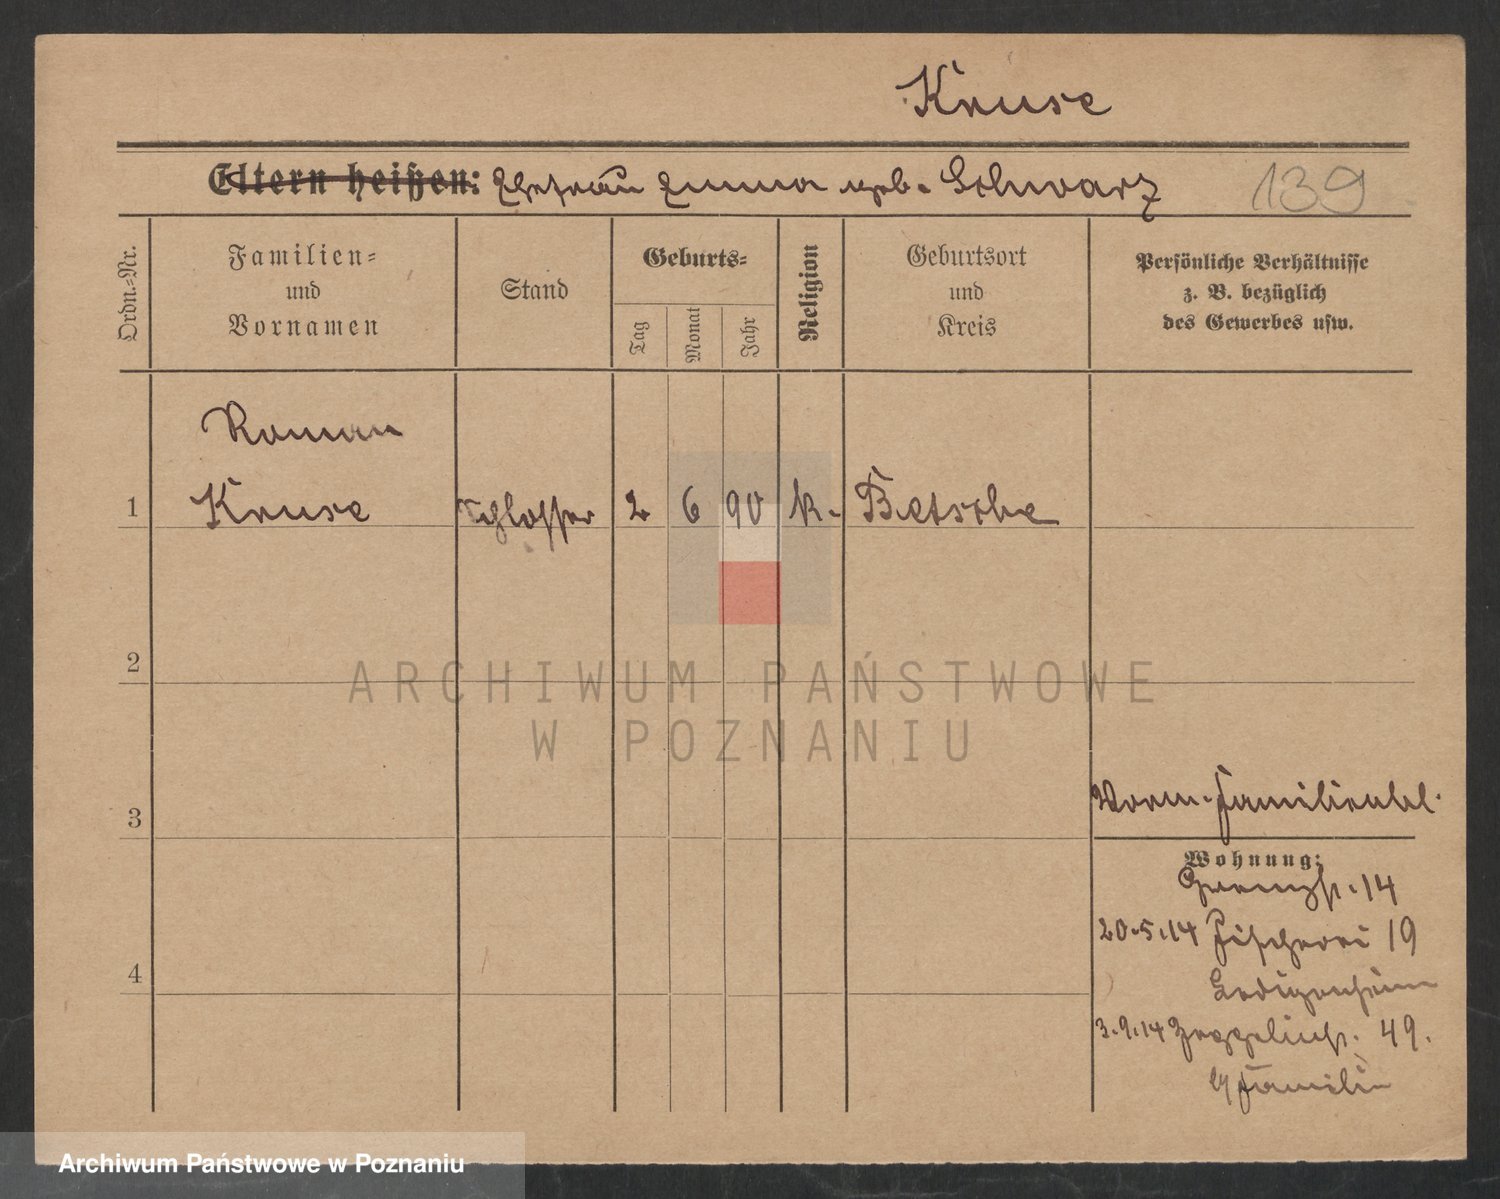 Kruse
Eltern heißen: Ehefrau Emma geb. Schwarz 139
Ordn.-Nr.
Familien-
und
Vornamen
Stand
Geburts-
Tag
Monat
Jahr
Religion
Geburtsort
und
Kreis
Persönliche Verhältnisse
z. B. bezüglich
des Gewerbes usw.
Roman
1 Kruse Schlosser 2 6 90 k. Betsche
2
ARCHIWUM PAŃSTWOWE
W POZNANIU
3
Familienbl.
Wohnung:
Grenzstr. 14
20.5.14 Fischerei 19
Ledigenheim
4
3.9.14 Zeppelinstr. 49.
Familie
Archiwum Państwowe w Poznaniu